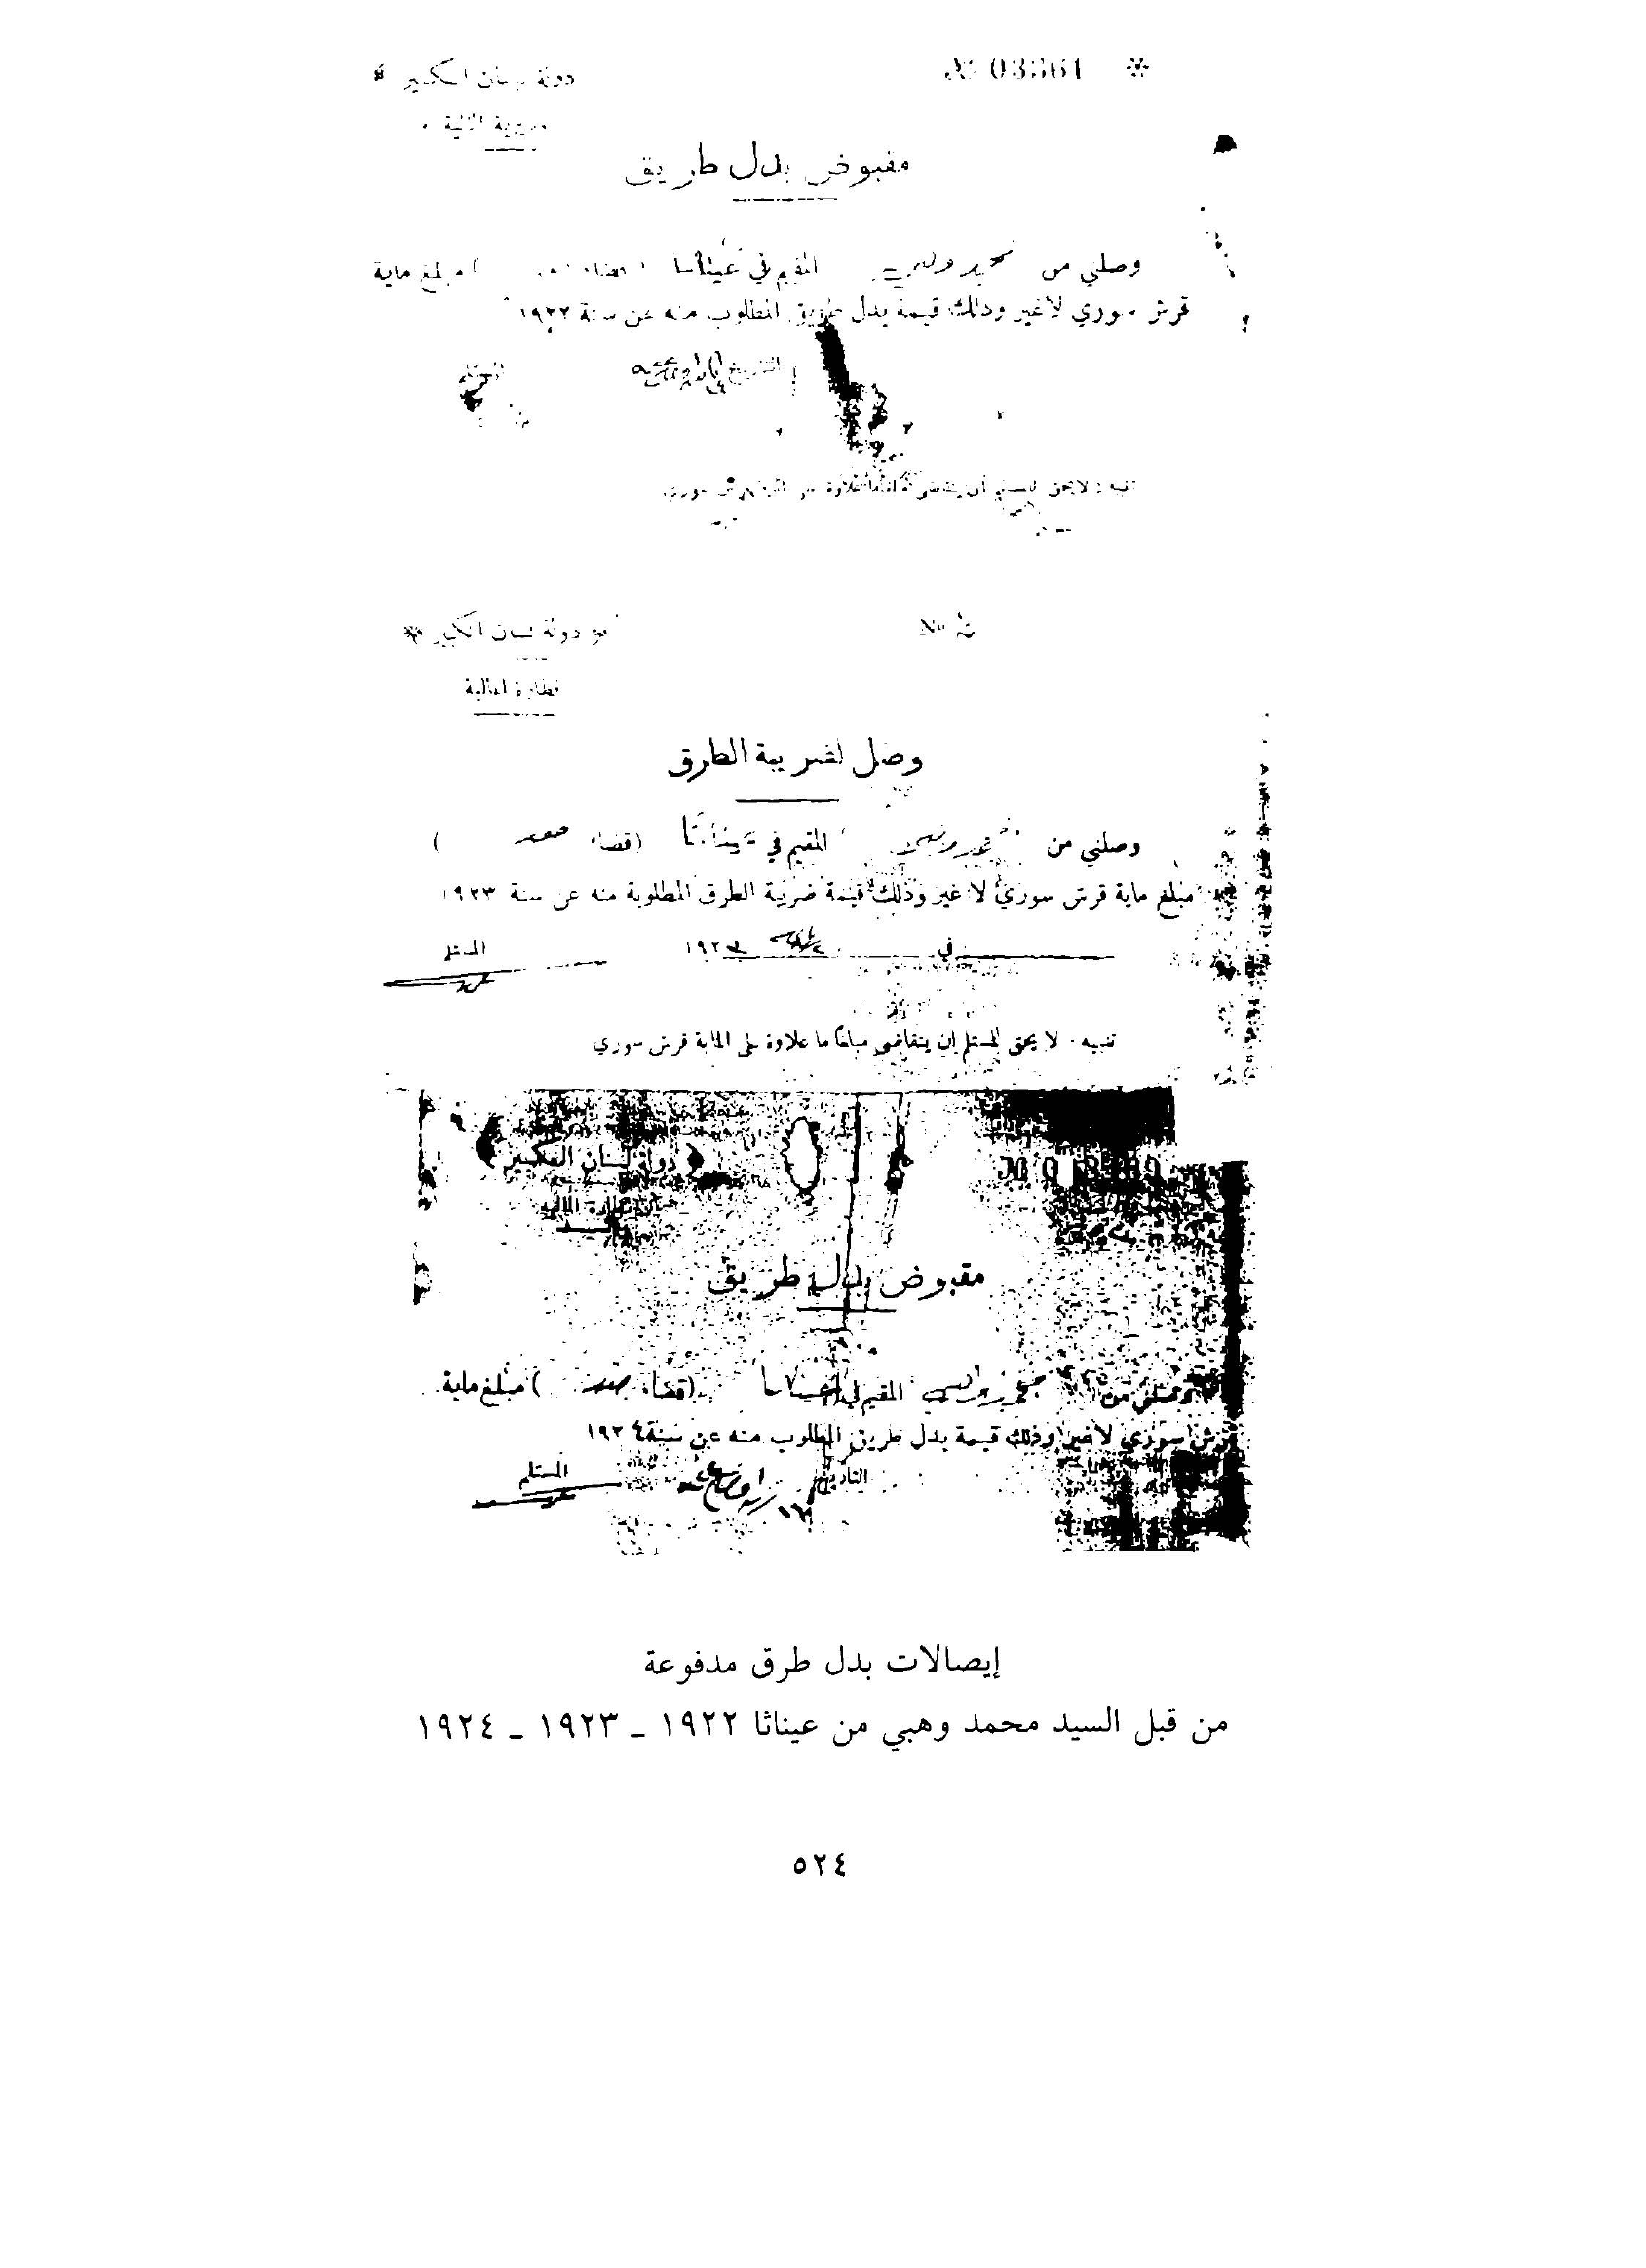 № 03361
دولة لبنان الكبير
مديرية المالية
مقبوض بدل طريق
وصلني من محمد وهبي المقيم في عيناثا (قضاء ) مبلغ ماية
قرش سوري لا غير وذلك قيمة بدل طريق المطلوب منه عن سنة ١٩٢٢
التاريخ المستلم
تنبيه : لا يحق للمستلم ان يتقاضى علاوة على الماية قرش سوري
№
دولة لبنان الكبير
نظارة المالية
وصل لضريبة الطرق
وصلني من محمد وهبي المقيم في عيناثا (قضاء صور )
مبلغ ماية قرش سوري لا غير وذلك قيمة ضريبة الطرق المطلوبة منه عن سنة ١٩٢٣
في ١٩٢٣ المستلم
تنبيه . لا يحق للمستلم ان يتقاضى مبلغا ما علاوة على الماية قرش سوري
دولة لبنان الكبير
مقبوض بدل طريق
وصلني من محمد وهبي المقيم في عيناثا (قضاء صور ) مبلغ ماية
قرش سوري لا غير وذلك قيمة بدل طريق المطلوب منه عن سنة ١٩٢٤
التاريخ المستلم
إيصالات بدل طرق مدفوعة
من قبل السيد محمد وهبي من عيناثا ١٩٢٢ ـ ١٩٢٣ ـ ١٩٢٤
٥٢٤